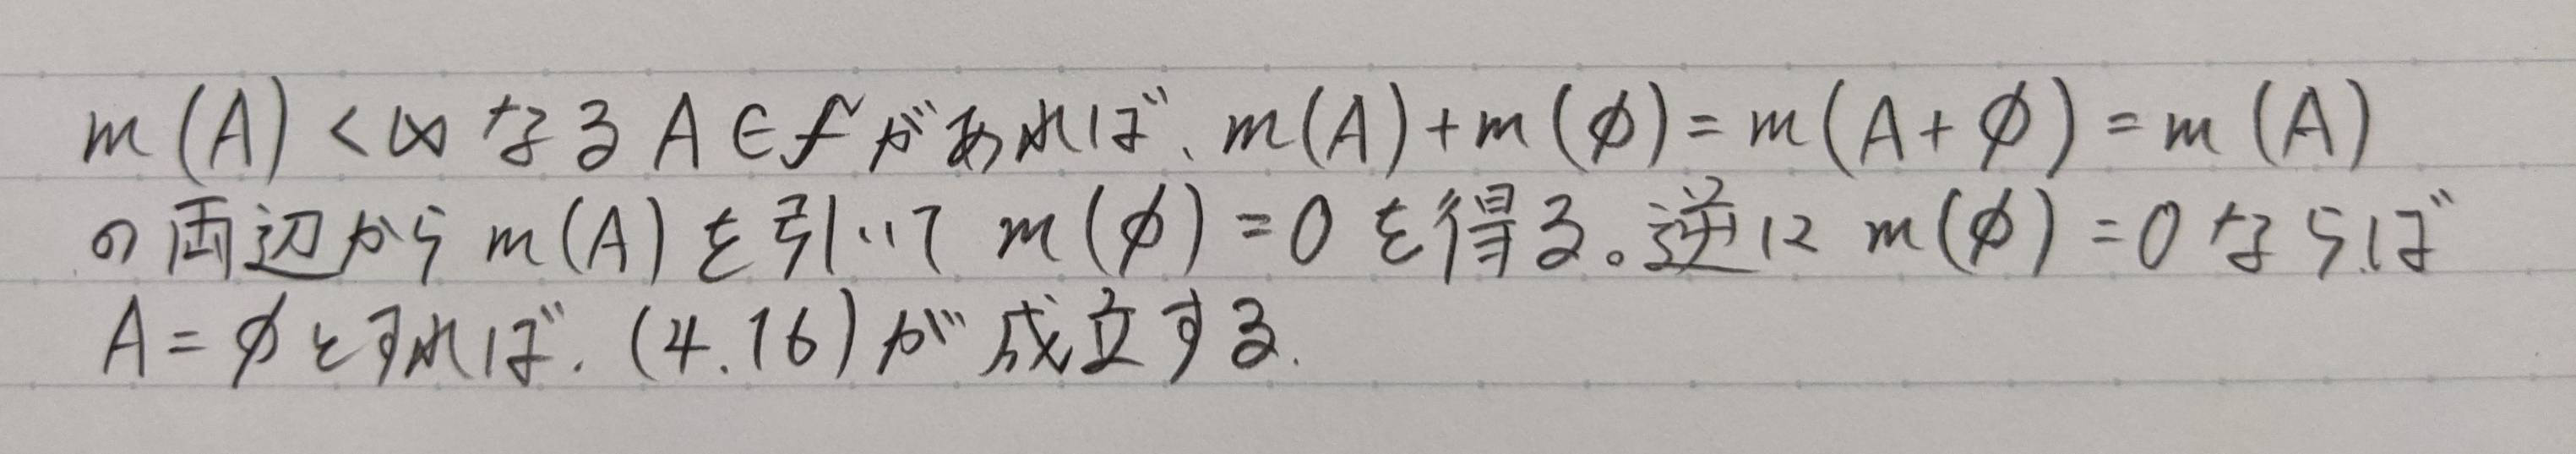 m(A)<∞なるA∈fがあれば、m(A)+m(φ)=m(A+φ)=m(A)
の両辺からm(A)を引いてm(φ)=0を得る。逆にm(φ)=0ならば
A=φとすれば、(4.16)が成立する.